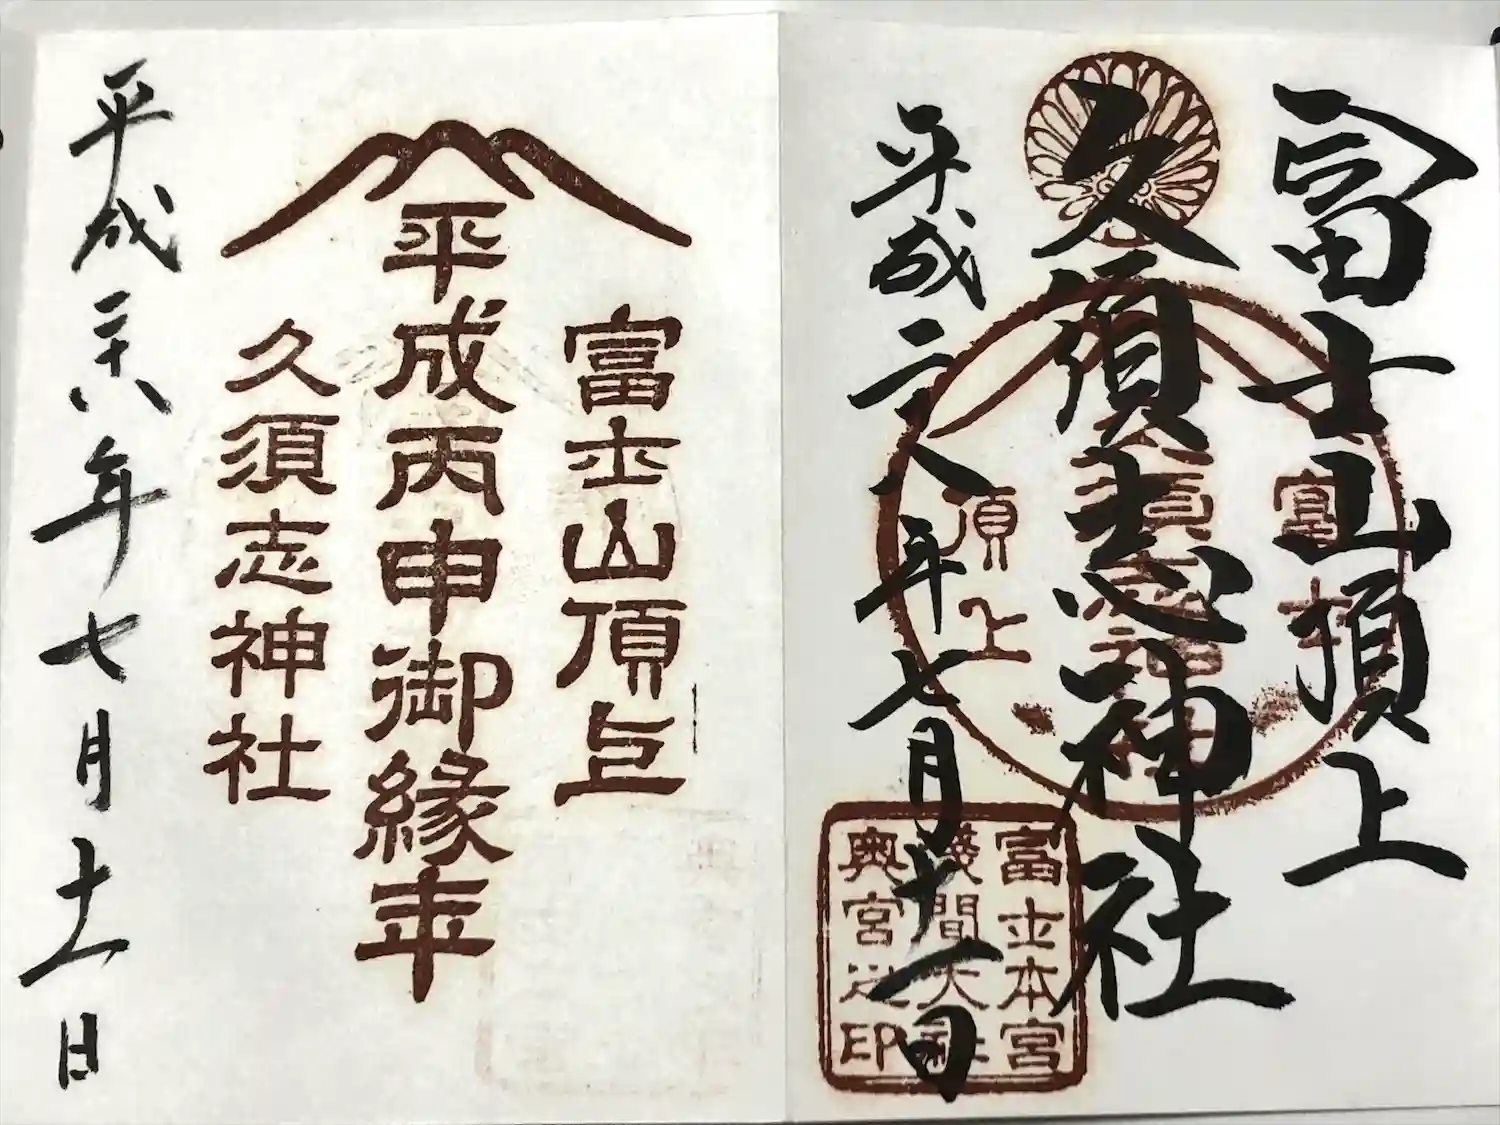 富士山頂上
久須志神社
平成二八年七月十一日
富士
頂上
富士本宮
淺間大社
奥宮之印
富士山頂上
平成丙申御縁年
久須志神社
平成二十八年七月十一日